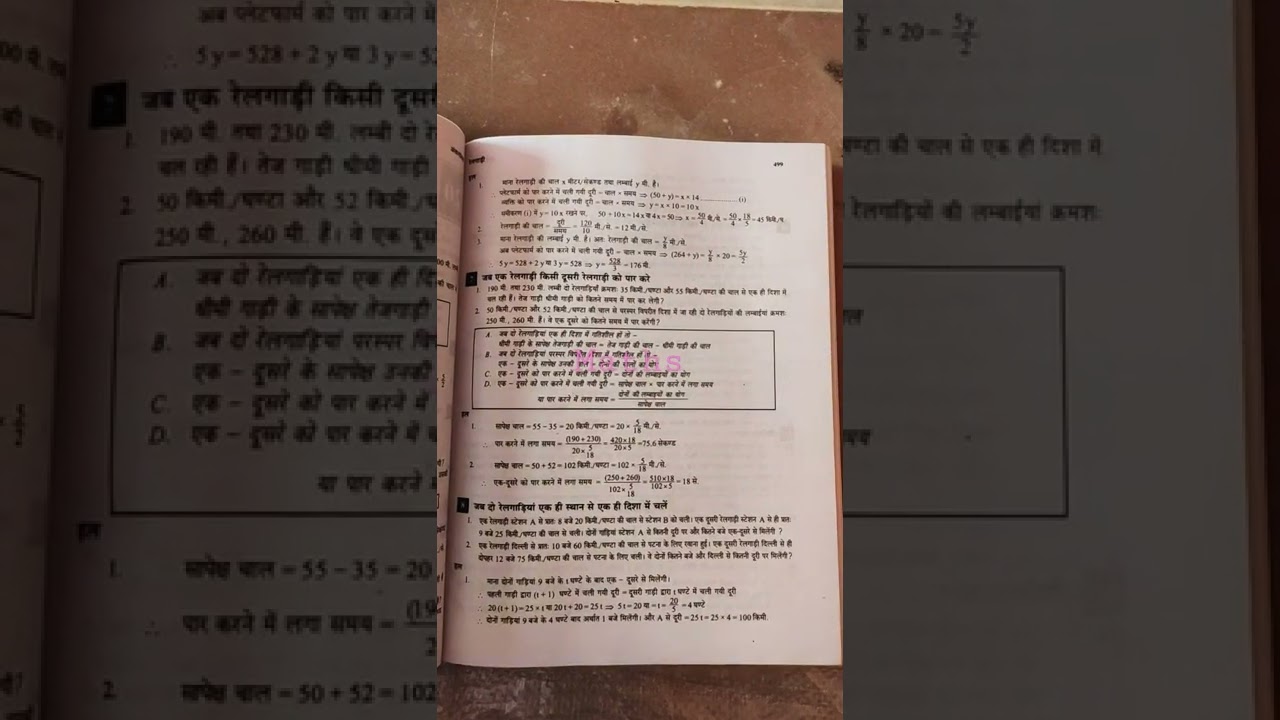 रेलगाड़ी
499
हल
1. माना रेलगाड़ी की चाल x मीटर/सेकण्ड तथा लम्बाई y मी. है।
∴ प्लेटफार्म को पार करने में चली गयी दूरी = चाल × समय ⇒ (50 + y) = x × 14 ..................(i)
व्यक्ति को पार करने में चली गयी दूरी = चाल × समय ⇒ y = x × 10 = 10 x
∴ समीकरण (i) में y = 10 x रखने पर, 50 + 10 x = 14 x या 4x = 50 ⇒ x = 50/4 मी./से. = 50/4 × 18/5 = 45 किमी./घ.
2. रेलगाड़ी की चाल = दूरी/समय = 120/10 मी./से. = 12 मी./से.
3. माना रेलगाड़ी की लम्बाई y मी. है। अतः रेलगाड़ी की चाल = y/8 मी./से.
अब प्लेटफार्म को पार करने में चली गयी दूरी = चाल × समय ⇒ (264 + y) = y/8 × 20 = 5y/2
∴ 5 y = 528 + 2 y या 3 y = 528 ⇒ y = 528/3 = 176 मी.
जब एक रेलगाड़ी किसी दूसरी रेलगाड़ी को पार करे
1. 190 मी. तथा 230 मी. लम्बी दो रेलगाड़ियाँ क्रमशः 35 किमी./घण्टा और 55 किमी./घण्टा की चाल से एक ही दिशा में
चल रही हैं। तेज गाड़ी धीमी गाड़ी को कितने समय में पार कर लेगी?
2. 50 किमी./घण्टा और 52 किमी./घण्टा की चाल से परस्पर विपरीत दिशा में जा रही दो रेलगाड़ियों की लम्बाईयां क्रमशः
250 मी., 260 मी. हैं। वे एक दूसरे को कितने समय में पार करेंगी?
A. जब दो रेलगाड़ियां एक ही दिशा में गतिशील हों तो –
धीमी गाड़ी के सापेक्ष तेजगाड़ी की चाल = तेज गाड़ी की चाल – धीमी गाड़ी की चाल
B. जब दो रेलगाड़ियां परस्पर दिशा में गतिशील हों तो –
एक – दूसरे के सापेक्ष उनकी
Maths
C. एक – दूसरे को पार करने में चली गयी दूरी = दोनों की लम्बाइयों का योग
D. एक – दूसरे को पार करने में चली गयी दूरी = सापेक्ष चाल × पार करने में लगा समय
या पार करने में लगा समय = दोनों की लम्बाइयों का योग/सापेक्ष चाल
हल
1. सापेक्ष चाल = 55 – 35 = 20 किमी./घण्टा = 20 × 5/18 मी./से.
∴ पार करने में लगा समय = (190 + 230)/20 × 5/18 = 420×18/20×5 = 75.6 सेकण्ड
2. सापेक्ष चाल = 50 + 52 = 102 किमी./घण्टा = 102 × 5/18 मी./से.
∴ एक-दूसरे को पार करने में लगा समय = (250 + 260)/102 × 5/18 = 510×18/102×5 = 18 से.
जब दो रेलगाड़ियां एक ही स्थान से एक ही दिशा में चलें
1. एक रेलगाड़ी स्टेशन A से प्रातः 8 बजे 20 किमी./घण्टा की चाल से स्टेशन B को चली। एक दूसरी रेलगाड़ी स्टेशन A से ही प्रातः
9 बजे 25 किमी./घण्टा की चाल से चली। दोनों गाड़ियां स्टेशन A से कितनी दूरी पर और कितने बजे एक-दूसरे से मिलेंगी ?
2. एक रेलगाड़ी दिल्ली से प्रातः 10 बजे 60 किमी./घण्टा की चाल से पटना के लिए रवाना हुई। एक दूसरी रेलगाड़ी दिल्ली से ही
दोपहर 12 बजे 75 किमी./घण्टा की चाल से पटना के लिए चली। वे दोनों कितने बजे और दिल्ली से कितनी दूरी पर मिलेंगी ?
हल
1. माना दोनों गाड़ियां 9 बजे के t घण्टे के बाद एक – दूसरे से मिलेंगी।
∴ पहली गाड़ी द्वारा (t + 1) घण्टे में चली गयी दूरी = दूसरी गाड़ी द्वारा t घण्टे में चली गयी दूरी
∴ 20 (t + 1) = 25 × t या 20 t + 20 = 25 t ⇒ 5 t = 20 या = t = 20/5 = 4 घण्टे
∴ दोनों गाड़ियां 9 बजे के 4 घण्टे बाद अर्थात 1 बजे मिलेंगी। और A से दूरी = 25 t = 25 × 4 = 100 किमी.